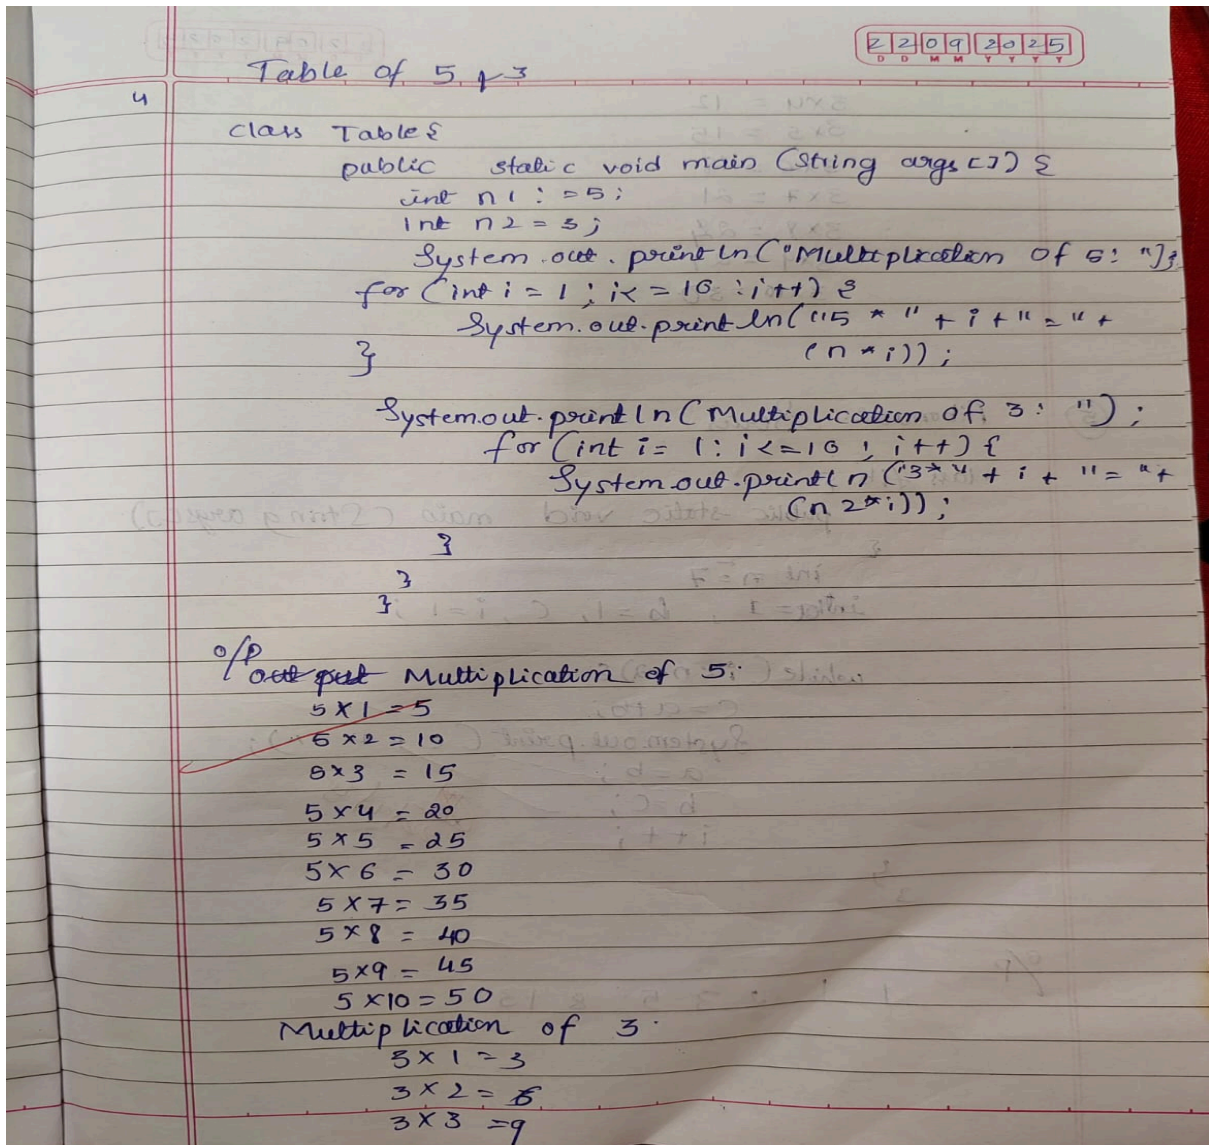 22092025
D D M M Y Y Y Y
Table of 5, & 3
4
class Table{
public static void main (String args []) {
int n1 : =5;
int n2 = 3;
System.out.println("Multiplication of 5: "];
for (int i = 1 ; i<=10 : i++) {
System.out.println("5 * " + i + " = " +
(n * i));
}
System.out.println(Multiplication of 3: ");
for (int i= 1: i<=10 ; i++) {
System.out.println("3*" + i + " = "+
(n2*i));
}
}
}
o/p
out put Multiplication of 5:
5 x 1 = 5
5 x 2 = 10
5x3 = 15
5 x 4 = 20
5 x 5 = 25
5x 6 = 30
5 x7 = 35
5 x 8 = 40
5x9 = 45
5 x10 = 50
Multiplication of 3.
3 x 1 = 3
3 x 2 = 6
3 x 3 =9